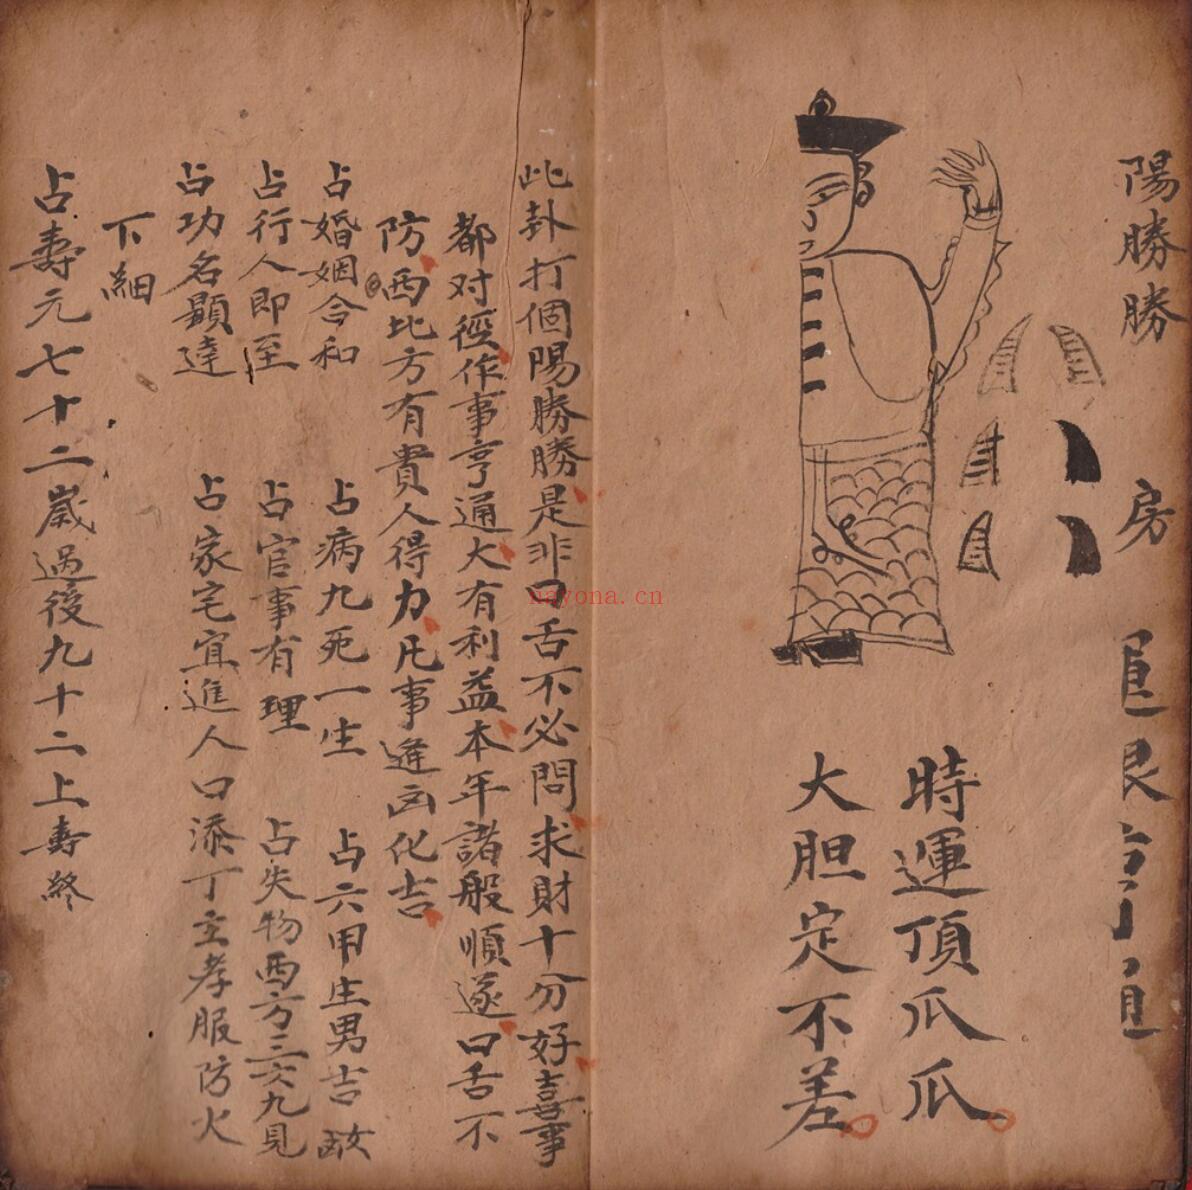 陽勝勝 房
時運頂爪爪
大胆定不差
此卦打個陽勝勝是非口舌不必問求財十分好喜事
都对徑作事亨通大有利益本年諸般順遂口舌不
防西北方有貴人得力凡事逢凶化吉
占婚姻合和 占病九死一生 占六甲生男吉
占行人即至 占官事有理 占失物西方三六九見
占功名顯達 占家宅宜進人口添丁主孝服防火
下細
占壽元七十二歲過後九十二上壽終
nayona.cn